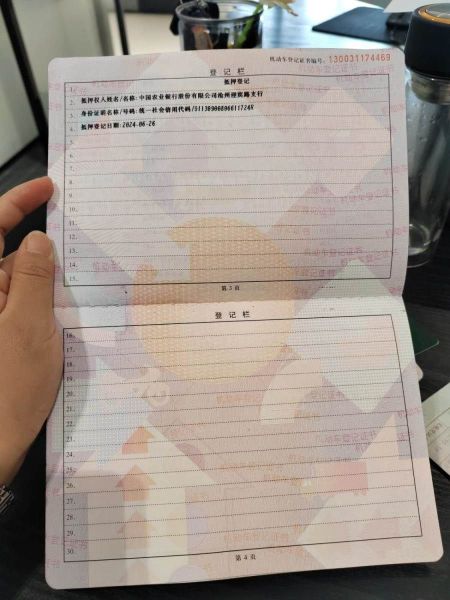 机动车登记证书编号：130031174469
登记栏
1. 抵押登记
2. 抵押权人姓名/名称:中国农业银行股份有限公司沧州迎宾路支行
3. 身份证明名称/号码:统一社会信用代码/
4. 抵押登记日期:2024-06-26
5.
6.
7.
8.
9.
10.
11.
12.
13.
14.
15.
第 3 页
登记栏
16.
17.
18.
19.
20.
21.
22.
23.
24.
25.
26.
27.
28.
29.
30.
第 4 页